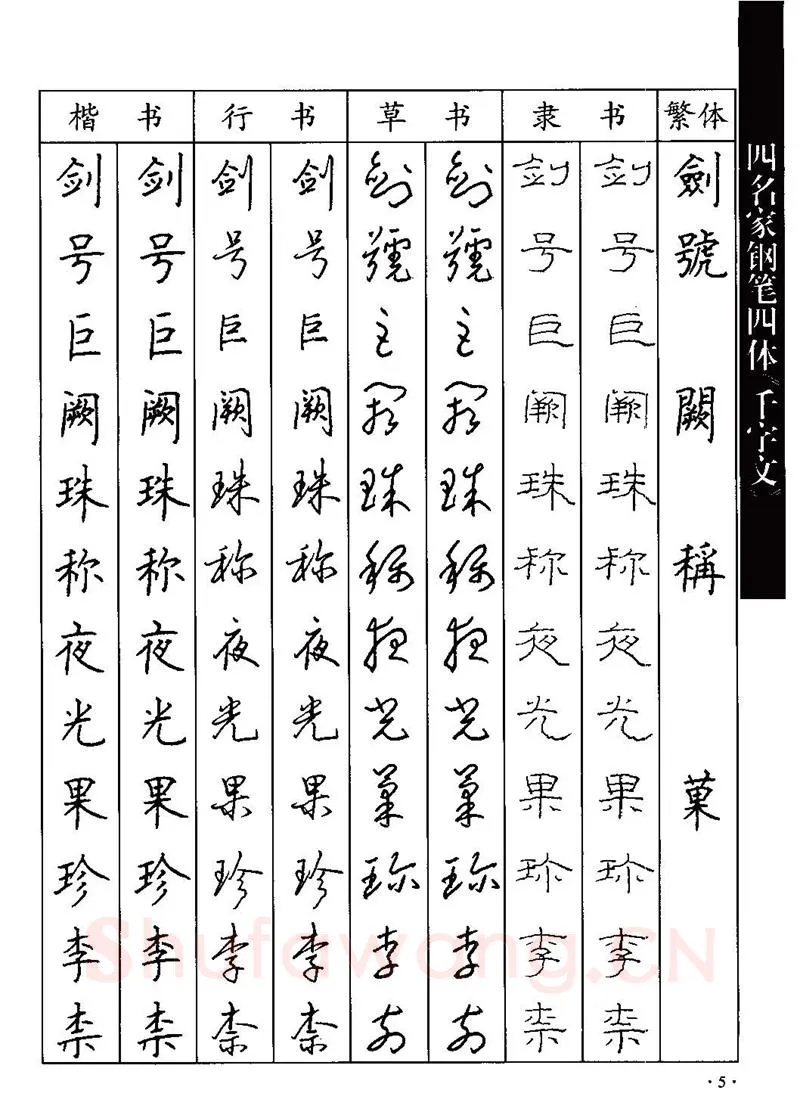 四名家钢笔四体《千字文》
楷书 行书 草书 隶书 繁体
剑 剑 剑 剑 劍 劍 剑 剑 劍
号 号 号 号 號 號 号 号 號
巨 巨 巨 巨 巨 巨 巨 巨
阙 阙 阙 阙 闕 闕 阙 阙 闕
珠 珠 珠 珠 珠 珠 珠 珠
称 称 称 称 稱 稱 称 称 稱
夜 夜 夜 夜 夜 夜 夜 夜
光 光 光 光 光 光 光 光
果 果 果 果 菓 菓 果 果 菓
珍 珍 珍 珍 珍 珍 珍 珍
李 李 李 李 李 李 李 李
柰 柰 柰 柰 柰 柰 柰 柰
Shufawang.CN
·5·